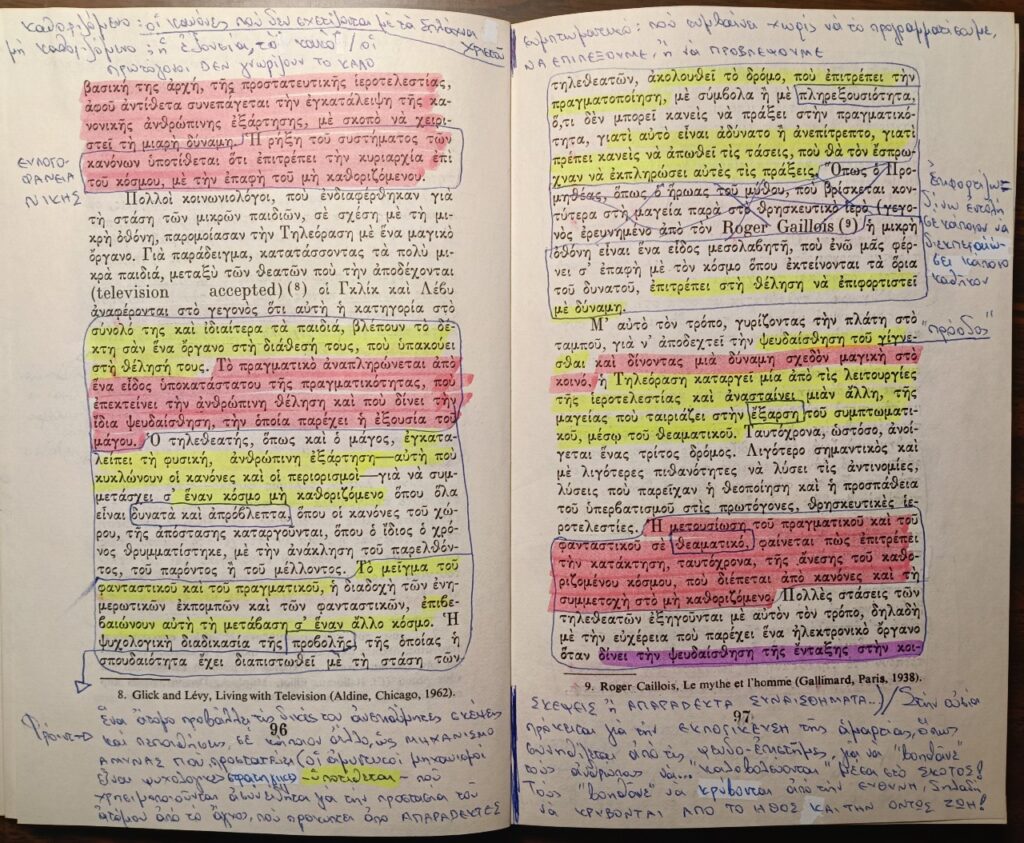 καθοριζόμενο: οἱ κανόνες ποὺ δεν σχετίζονται μὲ τὰ σπλάχνα Χριστοῦ
μὴ καθοριζόμενο: ἡ ἐξουσία, τὸ "κακὸ" / οἱ
πρωτόγονοι ΔΕΝ γνωρίζουν τὸ ΚΑΛΟ
βασική της ἀρχή, τῆς προστατευτικῆς ἱεροτελεστίας,
ἀφοῦ ἀντίθετα συνεπάγεται τὴν ἐγκατάλειψη τῆς κα-
νονικῆς ἀνθρώπινης ἐξάρτησης, μὲ σκοπὸ νὰ χειρι-
στεῖ τὴ μιαρὴ δύναμη. Ἡ ρήξη τοῦ συστήματος τῶν
κανόνων ὑποτίθεται ὅτι ἐπιτρέπει τὴν κυριαρχία ἐπὶ
τοῦ κόσμου, μὲ τὴν ἐπαφὴ τοῦ μὴ καθοριζόμενου.
ΕΥΛΟΓΟ-
ΦΑΝΕΙΑ
ΝΙΚΗΣ
Πολλοὶ κοινωνιολόγοι, ποὺ ἐνδιαφέρθηκαν γιὰ
τὴ στάση τῶν μικρῶν παιδιῶν, σὲ σχέση μὲ τὴ μι-
κρὴ ὀθόνη, παρομοίασαν τὴν Τηλεόραση μὲ ἕνα μαγικὸ
ὄργανο. Γιὰ παράδειγμα, κατατάσσοντας τὰ πολὺ μι-
κρὰ παιδιά, μεταξὺ τῶν θεατῶν ποὺ τὴν ἀποδέχονται
(television accepted) (8) οἱ Γκλὶκ καὶ Λέβυ
ἀναφέρονται στὸ γεγονὸς ὅτι αὐτὴ ἡ κατηγορία στὸ
σύνολό της καὶ ἰδιαίτερα τὰ παιδιά, βλέπουν τὸ δέ-
κτη σὰν ἕνα ὄργανο στὴ διάθεσή τους, ποὺ ὑπακούει
στὴ θέλησή τους. Τὸ πραγματικὸ ἀναπληρώνεται ἀπὸ
ἕνα εἶδος ὑποκατάστατου τῆς πραγματικότητας, ποὺ
ἐπεκτείνει τὴν ἀνθρώπινη θέληση καὶ ποὺ δίνει τὴν
ἴδια ψευδαίσθηση, τὴν ὁποία παρέχει ἡ ἐξουσία τοῦ
μάγου. Ὁ τηλεθεατής, ὅπως καὶ ὁ μάγος, ἐγκατα-
λείπει τὴ φυσική, ἀνθρώπινη ἐξάρτηση—αὐτὴ ποὺ
κυκλώνουν οἱ κανόνες καὶ οἱ περιορισμοὶ—γιὰ νὰ συμ-
μετάσχει σ' ἕναν κόσμο μὴ καθοριζόμενο ὅπου ὅλα
εἶναι δυνατὰ καὶ ἀπρόβλεπτα, ὅπου οἱ κανόνες τοῦ χώ-
ρου, τῆς ἀπόστασης καταργοῦνται, ὅπου ὁ ἴδιος ὁ χρό-
νος θρυμματίστηκε, μὲ τὴν ἀνάκληση τοῦ παρελθόν-
τος, τοῦ παρόντος ἢ τοῦ μέλλοντος. Τὸ μεῖγμα τοῦ
φανταστικοῦ καὶ τοῦ πραγματικοῦ, ἡ διαδοχὴ τῶν ἐνη-
μερωτικῶν ἐκπομπῶν καὶ τῶν φανταστικῶν, ἐπιβε-
βαιώνουν αὐτὴ τὴ μετάβαση σ' ἕναν ἄλλο κόσμο. Ἡ
ψυχολογικὴ διαδικασία τῆς προβολῆς τῆς ὁποίας ἡ
σπουδαιότητα ἔχει διαπιστωθεῖ μὲ τὴ στάση τῶν
8. Glick and Lévy, Living with Television (Aldine, Chicago, 1962).
96
Φρόυντ→ Ἕνα ἄτομο προβάλλει τὶς δικές του ἀνεπιθύμητες σκέψεις
καὶ πεποιθήσεις, σὲ κάποιον ἄλλο, ὡς ΜΗΧΑΝΙΣΜΟ
ΑΜΥΝΑΣ ΠΟΥ προστατεύει (οἱ ἀμυντικοὶ μηχανισμοὶ
εἶναι ψυχολογικὲς στρατηγικὲς - ὑποτίθεται - ποὺ
χρησιμοποιοῦνται ἀσυνείδητα γιὰ τὴν προστασία τοῦ
ἀτόμου ἀπὸ τὸ ἄγχος, ποὺ προκύπτει ἀπὸ ΑΠΑΡΑΔΕΚΤΕΣ
συμπτωματικό: ποὺ συμβαίνει χωρὶς νὰ τὸ προγραμματίσουμε,
ΝΑ ΕΠΙΛΕΞΟΥΜΕ, ἢ νὰ ΠΡΟΒΛΕΨΟΥΜΕ
τηλεθεατῶν, ἀκολουθεῖ τὸ δρόμο, ποὺ ἐπιτρέπει τὴν
πραγματοποίηση, μὲ σύμβολα ἢ μὲ πληρεξουσιότητα,
ὅ,τι δὲν μπορεῖ κανεὶς νὰ πράξει στὴν πραγματικό-
τητα, γιατὶ αὐτὸ εἶναι ἀδύνατο ἢ ἀνεπίτρεπτο, γιατὶ
πρέπει κανεὶς νὰ ἀπωθεῖ τὶς τάσεις, ποὺ θὰ τὸν ἔσπρω-
χναν νὰ ἐκπληρώσει αὐτὲς τὶς πράξεις. Ὅπως ὁ Προ-
μηθέας, ὅπως ὁ ἥρωας τοῦ μύθου, ποὺ βρίσκεται κον-
τύτερα στὴ μαγεία παρὰ στὸ θρησκευτικὸ ἱερὸ (γεγο-
νὸς ἐρευνημένο ἀπὸ τὸν Roger Gaillois (9) ἡ μικρὴ
ὀθόνη εἶναι ἕνα εἶδος μεσολαβητῆ, ποὺ ἐνῶ μᾶς φέρ-
νει σ' ἐπαφὴ μὲ τὸν κόσμο ὅπου ἐκτείνονται τὰ ὅρια
τοῦ δυνατοῦ, ἐπιτρέπει στὴ θέληση νὰ ἐπιφορτιστεῖ
μὲ δύναμη.
ἐπιφορτίζω=
δίνω ἐντολὴ
σὲ κάποιον νὰ
διεκπεραιώ-
σει κάποιο
καθῆκον
Μ' αὐτὸ τὸν τρόπο, γυρίζοντας τὴν πλάτη στὸ
ταμπού, γιὰ ν' ἀποδεχτεῖ τὴν ψευδαίσθηση τοῦ γίγνε-
σθαι καὶ δίνοντας μιὰ δύναμη σχεδὸν μαγικὴ στὸ
κοινό, ἡ Τηλεόραση καταργεῖ μία ἀπὸ τὶς λειτουργίες
τῆς ἱεροτελεστίας καὶ ἀνασταίνει μιὰν ἄλλη, τῆς
μαγείας ποὺ ταιριάζει στὴν ἔξαρση τοῦ συμπτωματι-
κοῦ, μέσῳ τοῦ θεαματικοῦ. Ταυτόχρονα, ὡστόσο, ἀνοί-
γεται ἕνας τρίτος δρόμος. Λιγότερο σημαντικὸς καὶ
μὲ λιγότερες πιθανότητες νὰ λύσει τὶς ἀντινομίες,
λύσεις ποὺ παρεῖχαν ἡ θεοποίηση καὶ ἡ προσπάθεια
τοῦ ὑπερβατισμοῦ στὶς πρωτόγονες, θρησκευτικὲς ἱε-
ροτελεστίες. Ἡ μετουσίωση τοῦ πραγματικοῦ καὶ τοῦ
φανταστικοῦ σὲ θεαματικό, φαίνεται πὼς ἐπιτρέπει
τὴν κατάκτηση, ταυτόχρονα, τῆς ἄνεσης τοῦ καθο-
ριζομένου κόσμου, ποὺ διέπεται ἀπὸ κανόνες καὶ τὴ
συμμετοχὴ στὸ μὴ καθοριζόμενο. Πολλὲς στάσεις τῶν
τηλεθεατῶν ἐξηγοῦνται μὲ αὐτὸν τὸν τρόπο, δηλαδὴ
μὲ τὴν εὐχέρεια ποὺ παρέχει ἕνα ἠλεκτρονικὸ ὄργανο
ὅταν δίνει τὴν ψευδαίσθηση τῆς ἔνταξης στὴν κοι-
"πρόοδος"
9. Roger Caillois, Le mythe et l'homme (Gallimard, Paris, 1938).
97
ΣΚΕΨΕΙΣ ἢ ΑΠΑΡΑΔΕΚΤΑ ΣΥΝΑΙΣΘΗΜΑΤΑ...) / Στὴν οὐσία
πρόκειται γιὰ τὴν ΕΚΛΟΓΙΚΕΥΣΗ τῆς ἁμαρτίας, ὅπως
συνηθίζεται ἀπὸ τὶς ψευδο-ἐπιστῆμες, γιὰ νὰ "βοηθᾶνε"
τοὺς ἀνθρώπους νὰ... "καλοβολεύονται" μέσα στὸ ΣΚΟΤΟΣ!
Τοὺς "βοηθᾶνε" νὰ κρύβονται ἀπὸ τὴν ΕΥΘΥΝΗ, δηλαδὴ
νὰ ΚΡΥΒΟΝΤΑΙ ΑΠΟ ΤΟ ΗΘΟΣ ΚΑΙ ΤΗΝ ΟΝΤΩΣ ΖΩΗ!